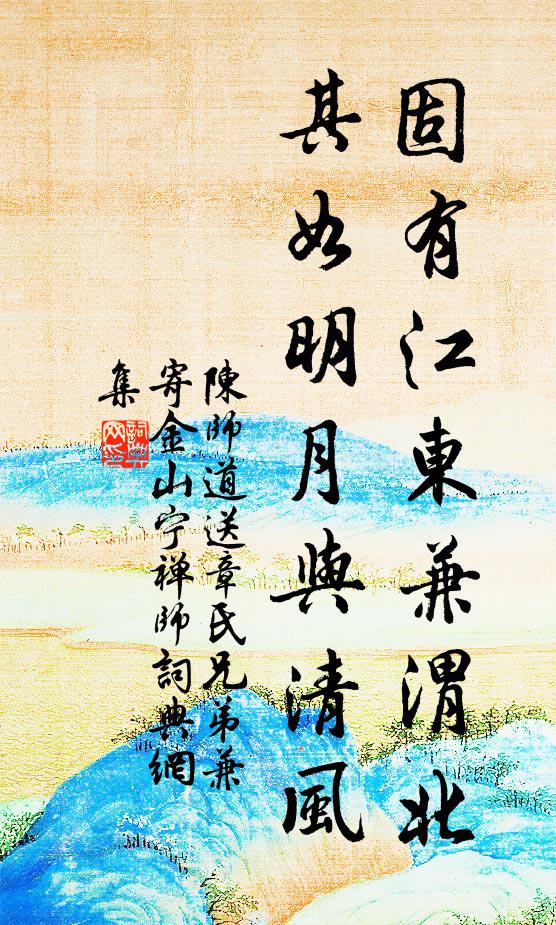 固有江東兼渭北
其如明月與清風
陳師道送章民兄弟兼
寄金山宁禅師詞典網
集